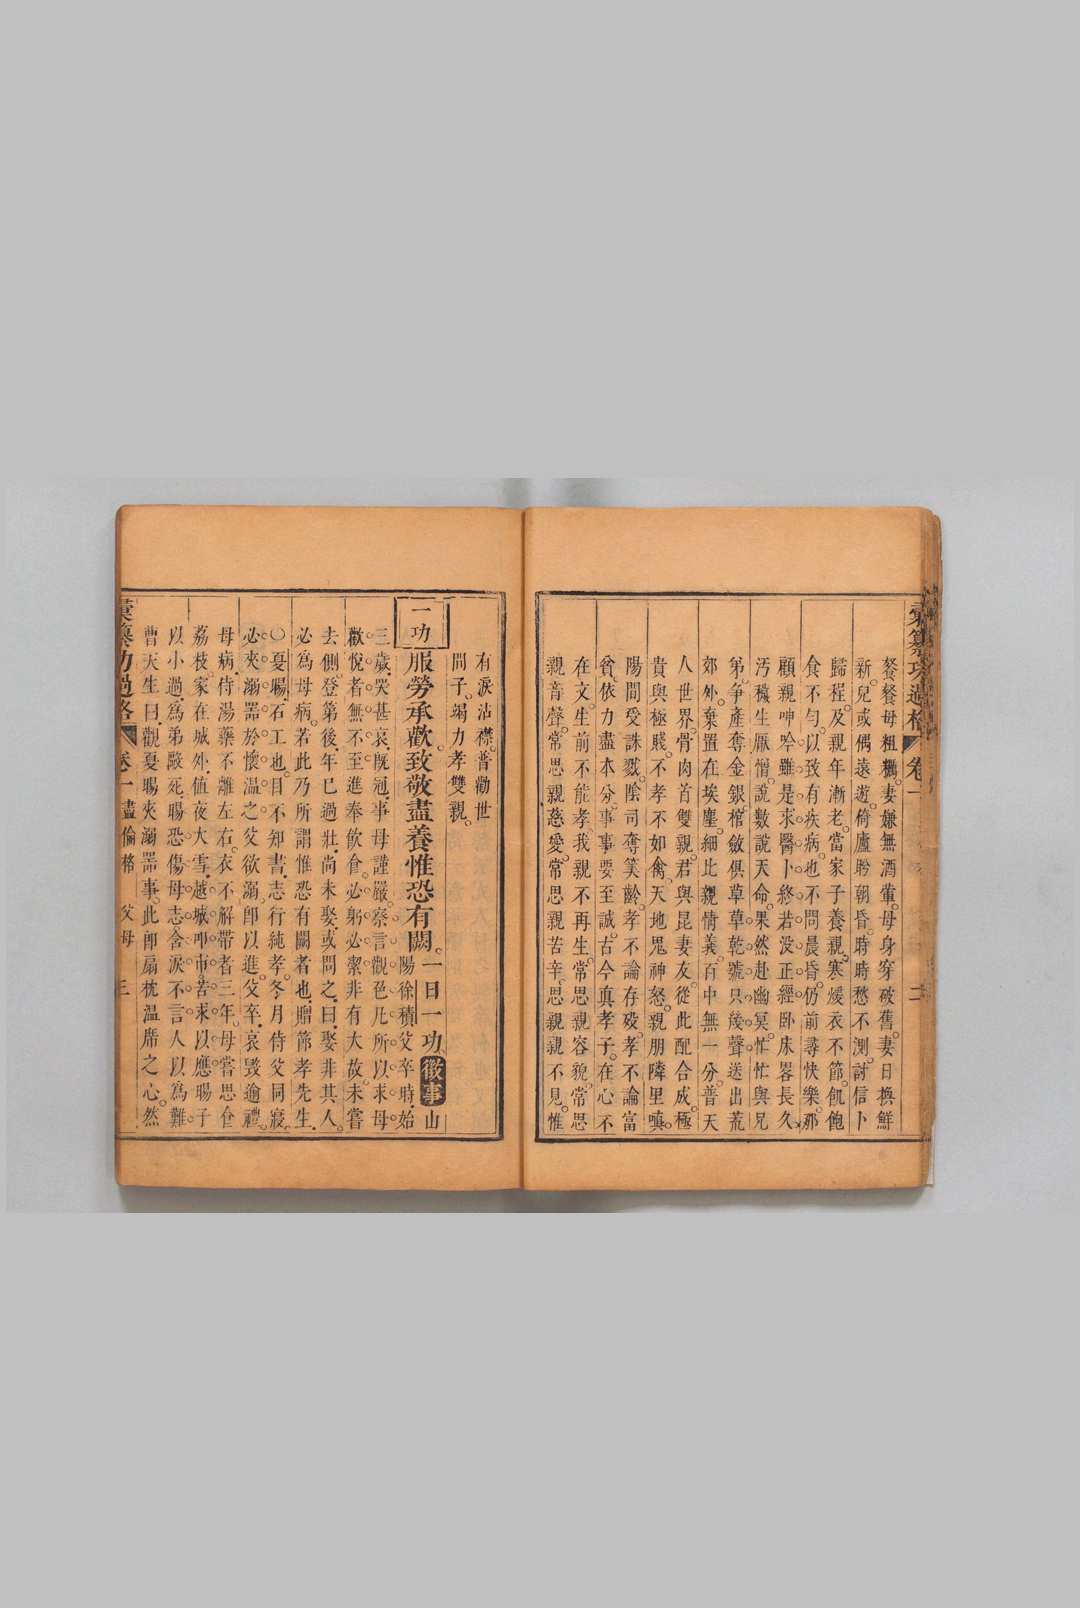 彙纂功過格 卷一 二
餐餐母粗糲妻嫌無酒葷母身穿破舊妻日換鮮
新兒或偶遠遊倚廬盼朝昏時時愁不測討信卜
歸程及親年漸老當家子養親寒煖衣不節飢飽
食不勻以致有疾病也不問晨昏仍前尋快樂那
顧親呻吟雖是求醫卜終若沒正經臥床畧長久
汚穢生厭憎說數說天命果然赴幽冥忙忙與兄
弟爭產奪金銀棺斂俱草草乾號只幾聲送出荒
郊外棄置在埃塵細比親情義百中無一分普天
人世界骨肉首雙親君與昆妻友從此配合成極
貴與極賤不孝不如禽天地鬼神怒親朋隣里嗔
陽間受誅戮陰司奪筭齡孝不論存歿孝不論富
貧依力盡本分事事要至誠古今真孝子在心不
在文生前不能孝我親不再生常思親容貌常思
親音聲常思親慈愛常思親苦辛思親親不見惟
有淚沾襟普勸世
間子竭力孝雙親
一功 服勞承歡致敬盡養惟恐有闕一日一功 徵事 山
陽徐積父卒時始
三歲哭甚哀旣冠事母謹嚴察言觀色凡所以求母
歡悅者無不至進奉飲食必躬必潔非有大故未嘗
去側登第後年已過壯尚未娶或問之曰娶非其人
必爲母病若此乃所謂惟恐有闕者也贈節孝先生
〇夏暘石工也目不知書志行純孝冬月侍父同寢
必夾溺器於懷溫之父欲溺卽以進父卒哀毀逾禮
母病侍湯藥不離左右衣不解帶者三年母嘗思食
荔枝家在城外値夜大雪越城叩市苦求以應暘子
以小過爲弟毆死暘恐傷母志含淚不言人以爲難
曹天生曰觀夏暘夾溺器事此卽扇枕溫席之心然
彙纂功過格 卷一 盡倫格 父母 三